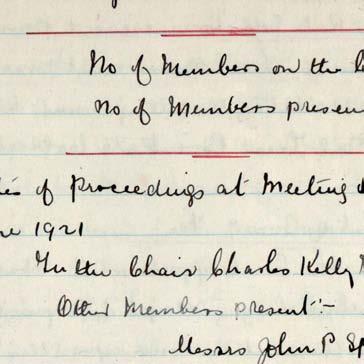 No of Members on the
No of Members presen
of Proceedings at Meeting
1921
In the Chair Charles Kelly
Other Members present:-
Messrs John P